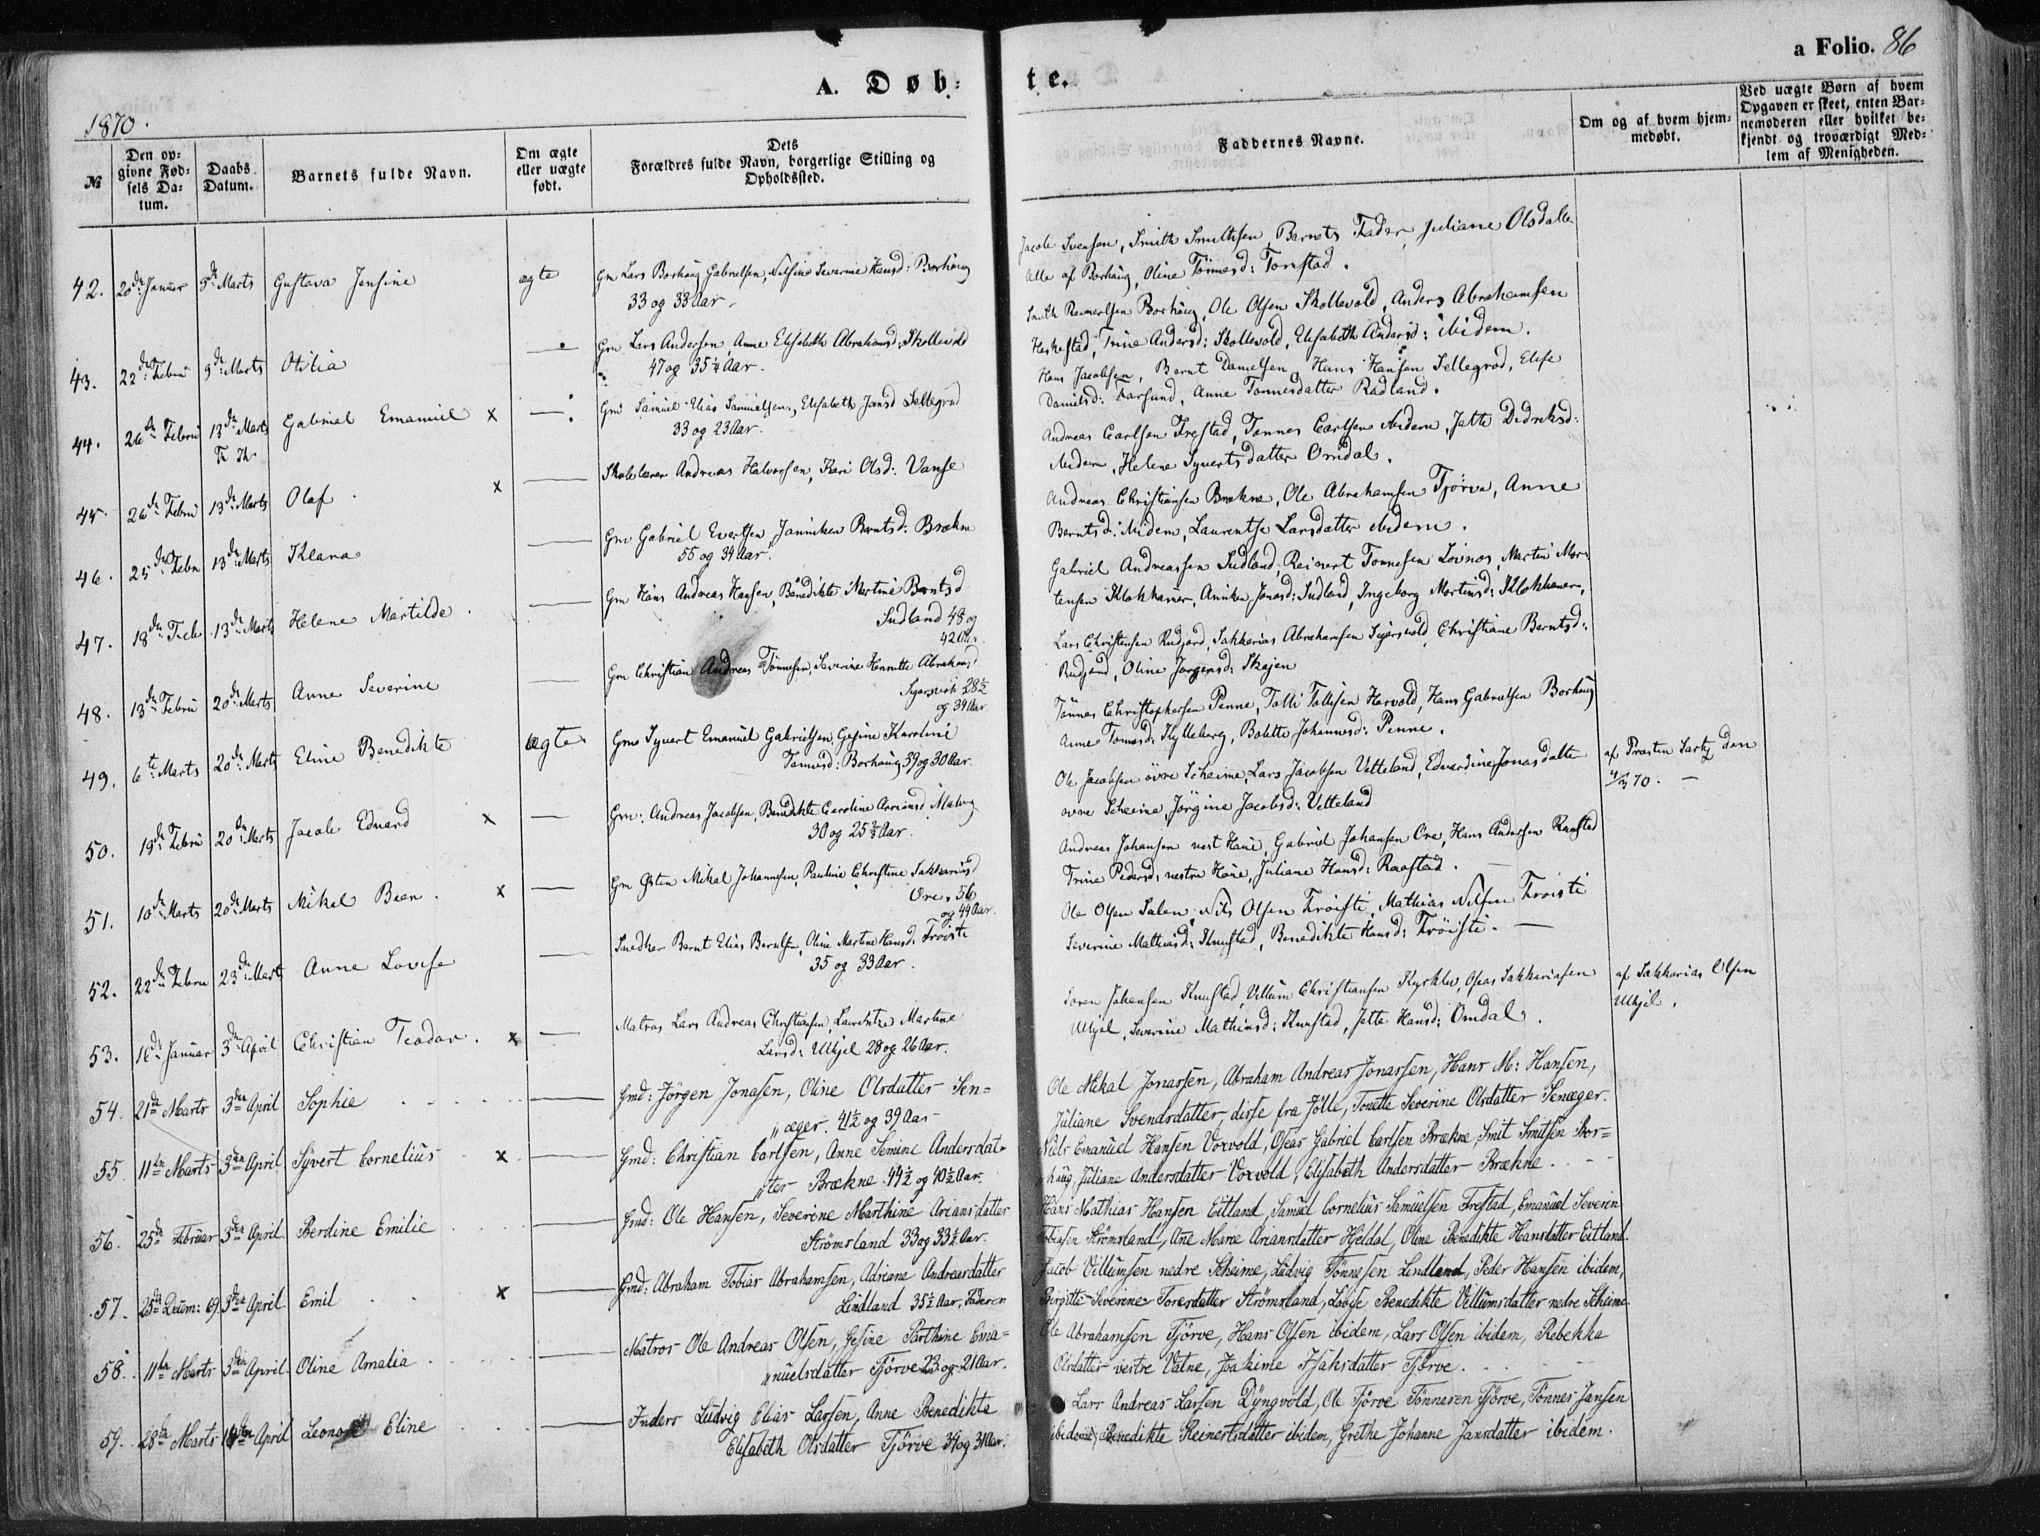 a Folio. 86
A. Døb-
te.
1870.
№
Den op-
givne Fød-
sels Da-
tum.
Daabs
Datum.
Barnets fulde Navn.
Om ægte
eller uægte
født.
Dets
Forældres fulde Navn, borgerlige Stilling og
Opholdssted.
Faddernes Navne.
Om og af hvem hjem-
medøbt.
Ved uægte Børn af hvem
Opgaven er skeet, enten Bar-
nemoderen eller hvilket be-
kjendt og troværdigt Med-
lem af Menigheden.
42. 20de Januar 5te Marts Gustava Jensine ægte Gm Lars Borhaug Gabrielsen, Nilsine Severine Hansd: Borhaug
33 og 33 Aar.
Jacob Svensen, Smith Smithsen, Barnets Fader, Juliane Olsdatter
alle af Borhaug, Oline Tönnesd: Tonstad.
43. 22de Febru 9de Marts Otilia — Gm Lars Andersen Anne Elisabeth Abrahamsd: Skollevold
47 og 35¼ Aar.
Smith Reinertsen Borhaug, Ole Olsen Skollevold, Anders Abrahamsen
Heskestad, Trine Andersd: Skollevold, Elisabeth Andersd: ibidem.
44. 26de Febru 13de Marts Gabriel Emanuel x — Gm Samuel Elias Samuelsen, Elisabeth Jansd Sellegrod
33 og 23 Aar.
Hans Jacobsen, Bernt Danielsen, Hans Hansen Sellegrod, Elise
Danielsd: Farsund, Anne Tonnesdatter Radland.
45. 26de Febru 13de Marts Olaf x — Skolelærer Andreas Halvorsen, Kari Olsd: Vanse
Andreas Carlsen Frestad, Tønnes Carlsen ibidem, Jette Didriksd:
ibidem, Helene Syvertsdatter Omdal.
46. 25de Febru 13de Marts Klara — Gm Gabriel Evertsen Janniken Berntsd: Brækne
55 og 34 Aar.
Andreas Christiansen Brækne, Ole Abrahamsen Tjörve, Anne
Berntsd: ibidem, Laurentse Larsdatter ibidem.
47. 18de Feb 13de Marts Helene Martilde — Gm Hans Andreas Hansen, Benedikte Martine Berntsd
Sudland 48 og
42 Aar.
Gabriel Andreassen Sudland, Reinert Tonnesen Lovnos, Martin Mor-
tensen Klokhamer, Aniken Jonasd: Sudland, Ingeborg Mortensd: Klokhamer,
48. 13de Febru 20de Marts Anne Severine — Gm Christian Andreas Tönnesen, Severine Henrette Abrahamsd
28½
og 39 Aar
Lars Christensen Rudjord, Sakkarias Abrahamsen Sigersvold, Christiane Berntsd:
Rudjord, Oline Jorgensd: Skejen
49. 6te Marts 20de Marts Eline Benedikte ægte Gm Syvert Emanuel Gabrielsen, Gesine Karoline
Tonnesd: Borhaug 39 og 30 Aar.
Tönnes Christophersen Penne, Tolli Tollisen Hervold, Hans Gabrielsen Borhaug
Anne Tomesd: Kylleberg, Bolette Johannesd: Penne.
50. 19de Febru 20de Marts Jacob Edvard x — Gm: Andreas Jacobsen, Benedikte Caroline Ariansd Malvig
30 og 25⅔ Aar.
Ole Jacobsen övre Scheime, Lars Jacobsen Vetteland, Edvardine Jonasdatter
övre Scheime, Jörgine Jacobsd: Vetteland
af Præsten Sartz den
4/3 70. —
51. 10de Marts 20de Marts Mikal Been. x — Gm Osten Mikal Johannesen, Pauline Christine Sakkariasd
Ore. 56
og 44 Aar.
Andreas Johansen vest Haue, Gabriel Johansen Ore, Hans Andersen Raastad
Trine Pedersd: vestre Haue, Juliane Hansd: Raastad. —
52. 22de Febru 23de Marts Anne Lovise — Snedker Bernt Elias Berntsen, Oline Martine Hansd: Fröisti
35 og 33 Aar.
Ole Olsen Salen, Nils Olsen Fröisti, Mathias Nilsen Fröisti
Severine Mathiasd: Knustad, Benedikte Hansd: Fröisti. —
53. 16de Januar 3de April Christian Teodor. x — Matros Lars Andreas Christiansen Laurentze Martine
Larsd: Ulgjel 28 og 26 Aar.
Soren Johansen Knustad, Villum Christiansen Kysklev, Oseas Sakkariasen
Ulgjel, Severine Mathiasd: Knustad, Jette Hansd: Omdal.
af Sakkarias Olsen
Ulgjel.
54. 21de Marts 3die April Sophie — Gmd: Jörgen Jonasen, Oline Olsdatter Sen-
„æger. 41½ og 39 Aar
Ole Mikal Jonassen, Abraham Andreas Jonassen, Hans M: Hansen,
Juliane Svendsdatter, disse fra Jölle, Tonette Severine Olsdatter Senæger.
55 11te Marts 3die April Syvert Cornelius x — Gmd: Christian Carlsen, Anne Semine Andersdat-
„ter Brækne 44½ og 40½ Aar.
Niels Emanuel Hansen Vorvold, Oseas Gabriel Carlsen Brækne, Smit Smitsen Bor-
haug, Juliane Andersdatter Vorvold, Elisabeth Andersdatter Brækne.
56. 25de Februar 3die April Berdine Emilie — Gmd: Ole Hansen, Severine Marthine Ariansdatter
Strömsland 33 og 33½ Aar.
Hans Mathias Hansen Eitland, Samuel Cornelius Samuelsen Frestad, Emanuel Severin
Tobiasen Strömsland, Ane Marie Ariansdatter Hjeldal, Oline Benedikte Hansdatter Eitland.
57. 25de Decem: 69 3die April Emil x — Gmd: Abraham Tobias Abrahamsen, Adriane Andreasdatter
Lindland 35½ Aar, Faderen
Jacob Villumsen nedre Scheime, Ludvig Tönnesen Lindland, Peder Hansen ibidem,
Birgitte Severine Toresdatter Strömsland, Lovise Benedikte Villumsdatter nedre Scheime
58. 11te Marts 3die April Oline Amalia — Matros Ole Andreas Olsen, Gesine Parthine Ema-
„nuelsdatter Tjörve 23 og 21 Aar.
Ole Abrahamsen Tjörve, Hans Olsen ibidem, Lars Olsen ibidem, Rebekka
Olsdatter vestre Vatne, Joakime Isaksdatter Tjörve.
59. 28de Marts 18de April Leonore Eline — Inders Ludvig Elias Larsen, Anne Benedikte
Elisabeth Olsdatter Tjörve 34 og 31 Aar.
Lars Andreas Larsen Dyngvold, Ole Tjörve Tönnesen Tjörve, Tönnes Jansen
ibidem, Benedikte Reinertsdatter ibidem, Grethe Johanne Jansdatter ibidem.